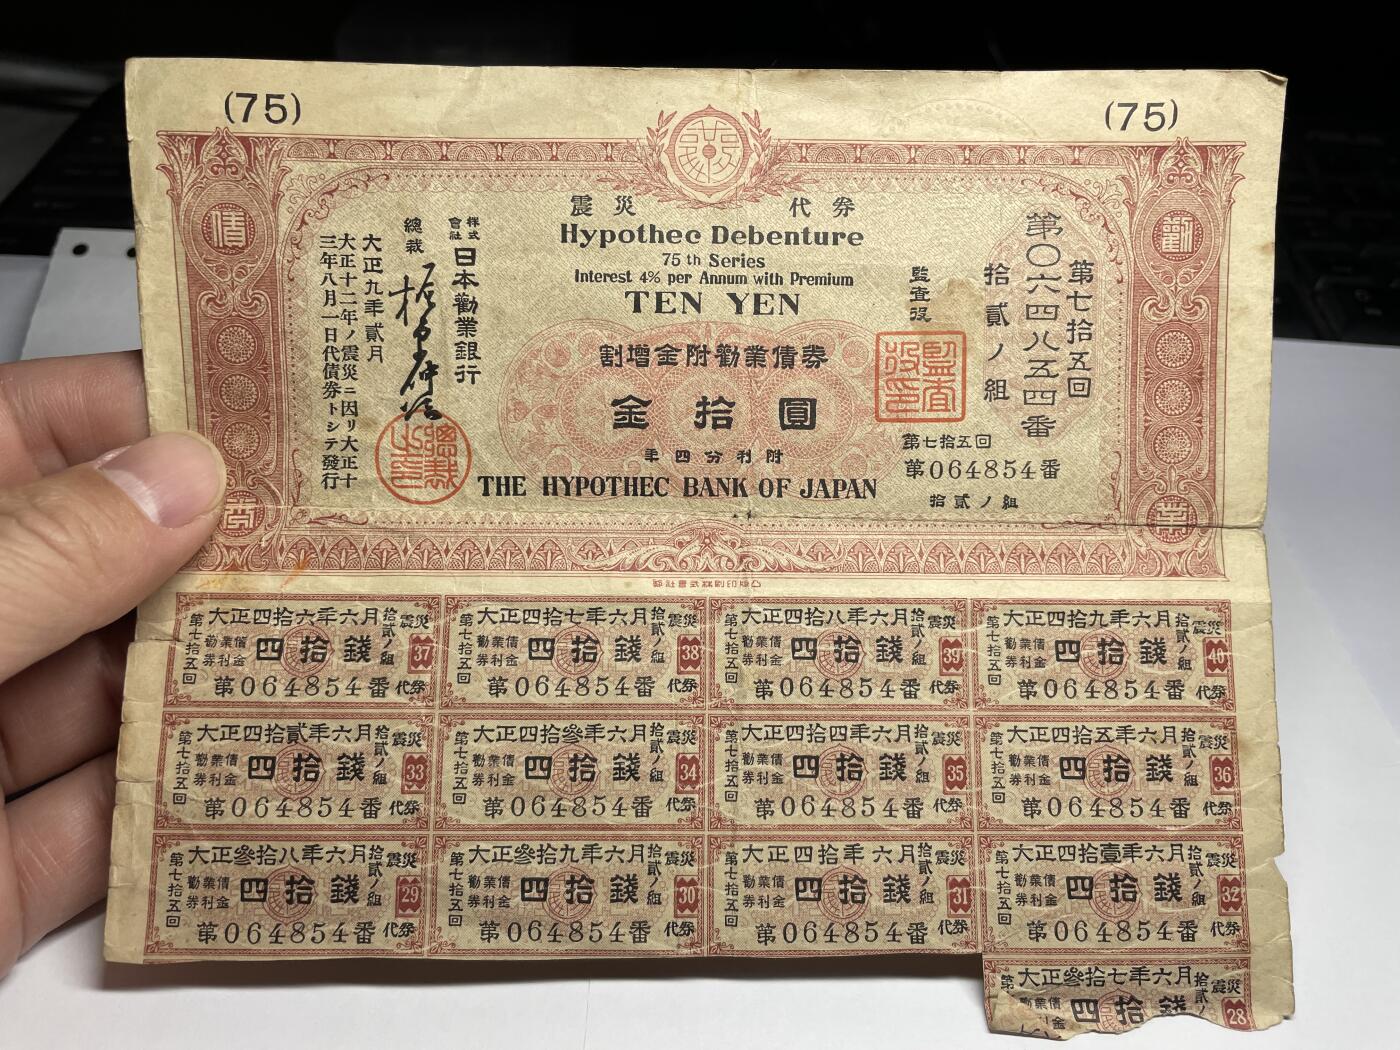 (75)
(75)
震災 代券
Hypothec Debenture
75th Series
Interest 4% per Annum with Premium
TEN YEN
割增金附勸業債券
金拾圓
年四分利附
THE HYPOTHEC BANK OF JAPAN
第七拾五回
第〇六四八五四番
拾貳ノ組
監査役
監査役印
第七拾五回
第064854番
拾貳ノ組
株式會社日本勸業銀行
總裁
總裁之印
大正九年貳月
大正十二年ノ震災ニ因リ大正十
三年八月一日代債券トシテ發行
勸
業
債
券
大正四拾六年六月
第七拾五回
勸業債券利金
四拾錢
拾貳ノ組
震災
37
第064854番
代券
大正四拾七年六月
第七拾五回
勸業債券利金
四拾錢
拾貳ノ組
震災
38
第064854番
代券
大正四拾八年六月
第七拾五回
勸業債券利金
四拾錢
拾貳ノ組
震災
39
第064854番
代券
大正四拾九年六月
第七拾五回
勸業債券利金
四拾錢
拾貳ノ組
震災
40
第064854番
代券
大正四拾貳年六月
第七拾五回
勸業債券利金
四拾錢
拾貳ノ組
震災
33
第064854番
代券
大正四拾參年六月
第七拾五回
勸業債券利金
四拾錢
拾貳ノ組
震災
34
第064854番
代券
大正四拾四年六月
第七拾五回
勸業債券利金
四拾錢
拾貳ノ組
震災
35
第064854番
代券
大正四拾五年六月
第七拾五回
勸業債券利金
四拾錢
拾貳ノ組
震災
36
第064854番
代券
大正參拾八年六月
第七拾五回
勸業債券利金
四拾錢
拾貳ノ組
震災
29
第064854番
代券
大正參拾九年六月
第七拾五回
勸業債券利金
四拾錢
拾貳ノ組
震災
30
第064854番
代券
大正四拾年六月
第七拾五回
勸業債券利金
四拾錢
拾貳ノ組
震災
31
第064854番
代券
大正四拾壹年六月
第七拾五回
勸業債券利金
四拾錢
拾貳ノ組
震災
32
第064854番
代券
大正參拾七年六月
第
四拾錢
拾貳ノ
震災
28